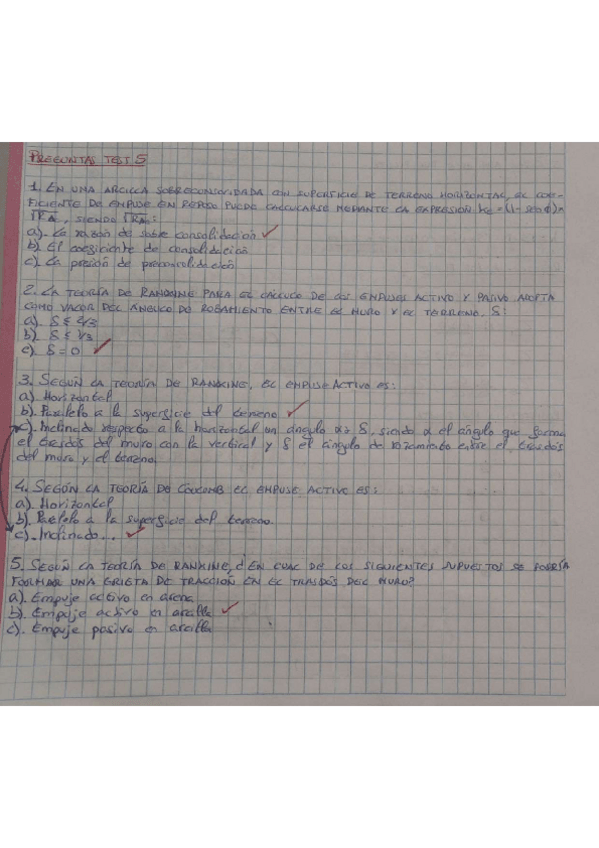 PREGUNTAS TEST 5
1. EN UNA ARCILLA SOBRECONSOLIDADA CON SUPERFICIE DE TERRENO HORIZONTAL, EL COE-
FICIENTE DE EMPUJE EN REPOSO PUEDE CALCULARSE MEDIANTE LA EXPRESIÓN K0 = (1 - sen ϕ)×
, SIENDO:
a). La razón de sobre consolidación ✓
b). El coeficiente de consolidación
c). La presión de preconsolidación
2. LA TEORÍA DE RANKINE PARA EL CÁLCULO DE LOS EMPUJES ACTIVO Y PASIVO ACEPTA
COMO VALOR DEL ÁNGULO DE ROZAMIENTO ENTRE EL MURO Y EL TERRENO, δ:
a). δ ≤ 2/3
b). δ ≤ 1/3
c). δ = 0 ✓
3. SEGÚN LA TEORÍA DE RANKINE, EL EMPUJE ACTIVO ES:
a). Horizontal
b). Paralelo a la superficie del terreno ✓
c). Inclinado respecto a la horizontal un ángulo α+δ, siendo α el ángulo que forma
el trasdós del muro con la vertical y δ el ángulo de rozamiento entre el trasdós
del muro y el terreno.
4. SEGÚN LA TEORÍA DE COULOMB EL EMPUJE ACTIVO ES:
a). Horizontal
b). Paralelo a la superficie del terreno.
c). Inclinado... ✓
5. SEGÚN LA TEORÍA DE RANKINE, ¿EN CUAL DE LOS SIGUIENTES SUPUESTOS SE PODRÍA
FORMAR UNA GRIETA DE TRACCIÓN EN EL TRASDÓS DEL MURO?
a). Empuje activo en arena
b). Empuje activo en arcilla ✓
c). Empuje pasivo en arcilla